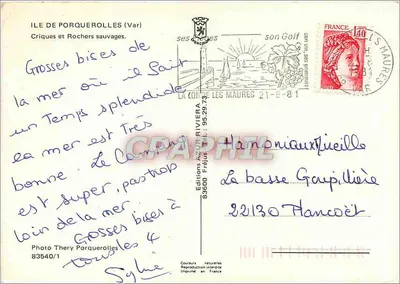 ILE DE PORQUEROLLES (Var)
Criques et Rochers sauvages.
Grosses bises de
la mer où il fait
un Temps splendide
la mer est Très
bonne. Le Camping
est super, pas trop
loin de la mer.
Grosses bises à
tous les 4
Sylvie
Photo Thery Porquerolles
83540/1
Editions AZUR RIVIERA
83600 Fréjus Tél. 95.29.73
Couleurs naturelles
Reproduction interdite
Imprimé en France
ses
son Golf
LA LONDE LES MAURES
21-8-81
FRANCE
1,40
LES MAURES
CPAPHIL
Hamoniaux Mireille
La basse Goupillière
22130 Plancoët